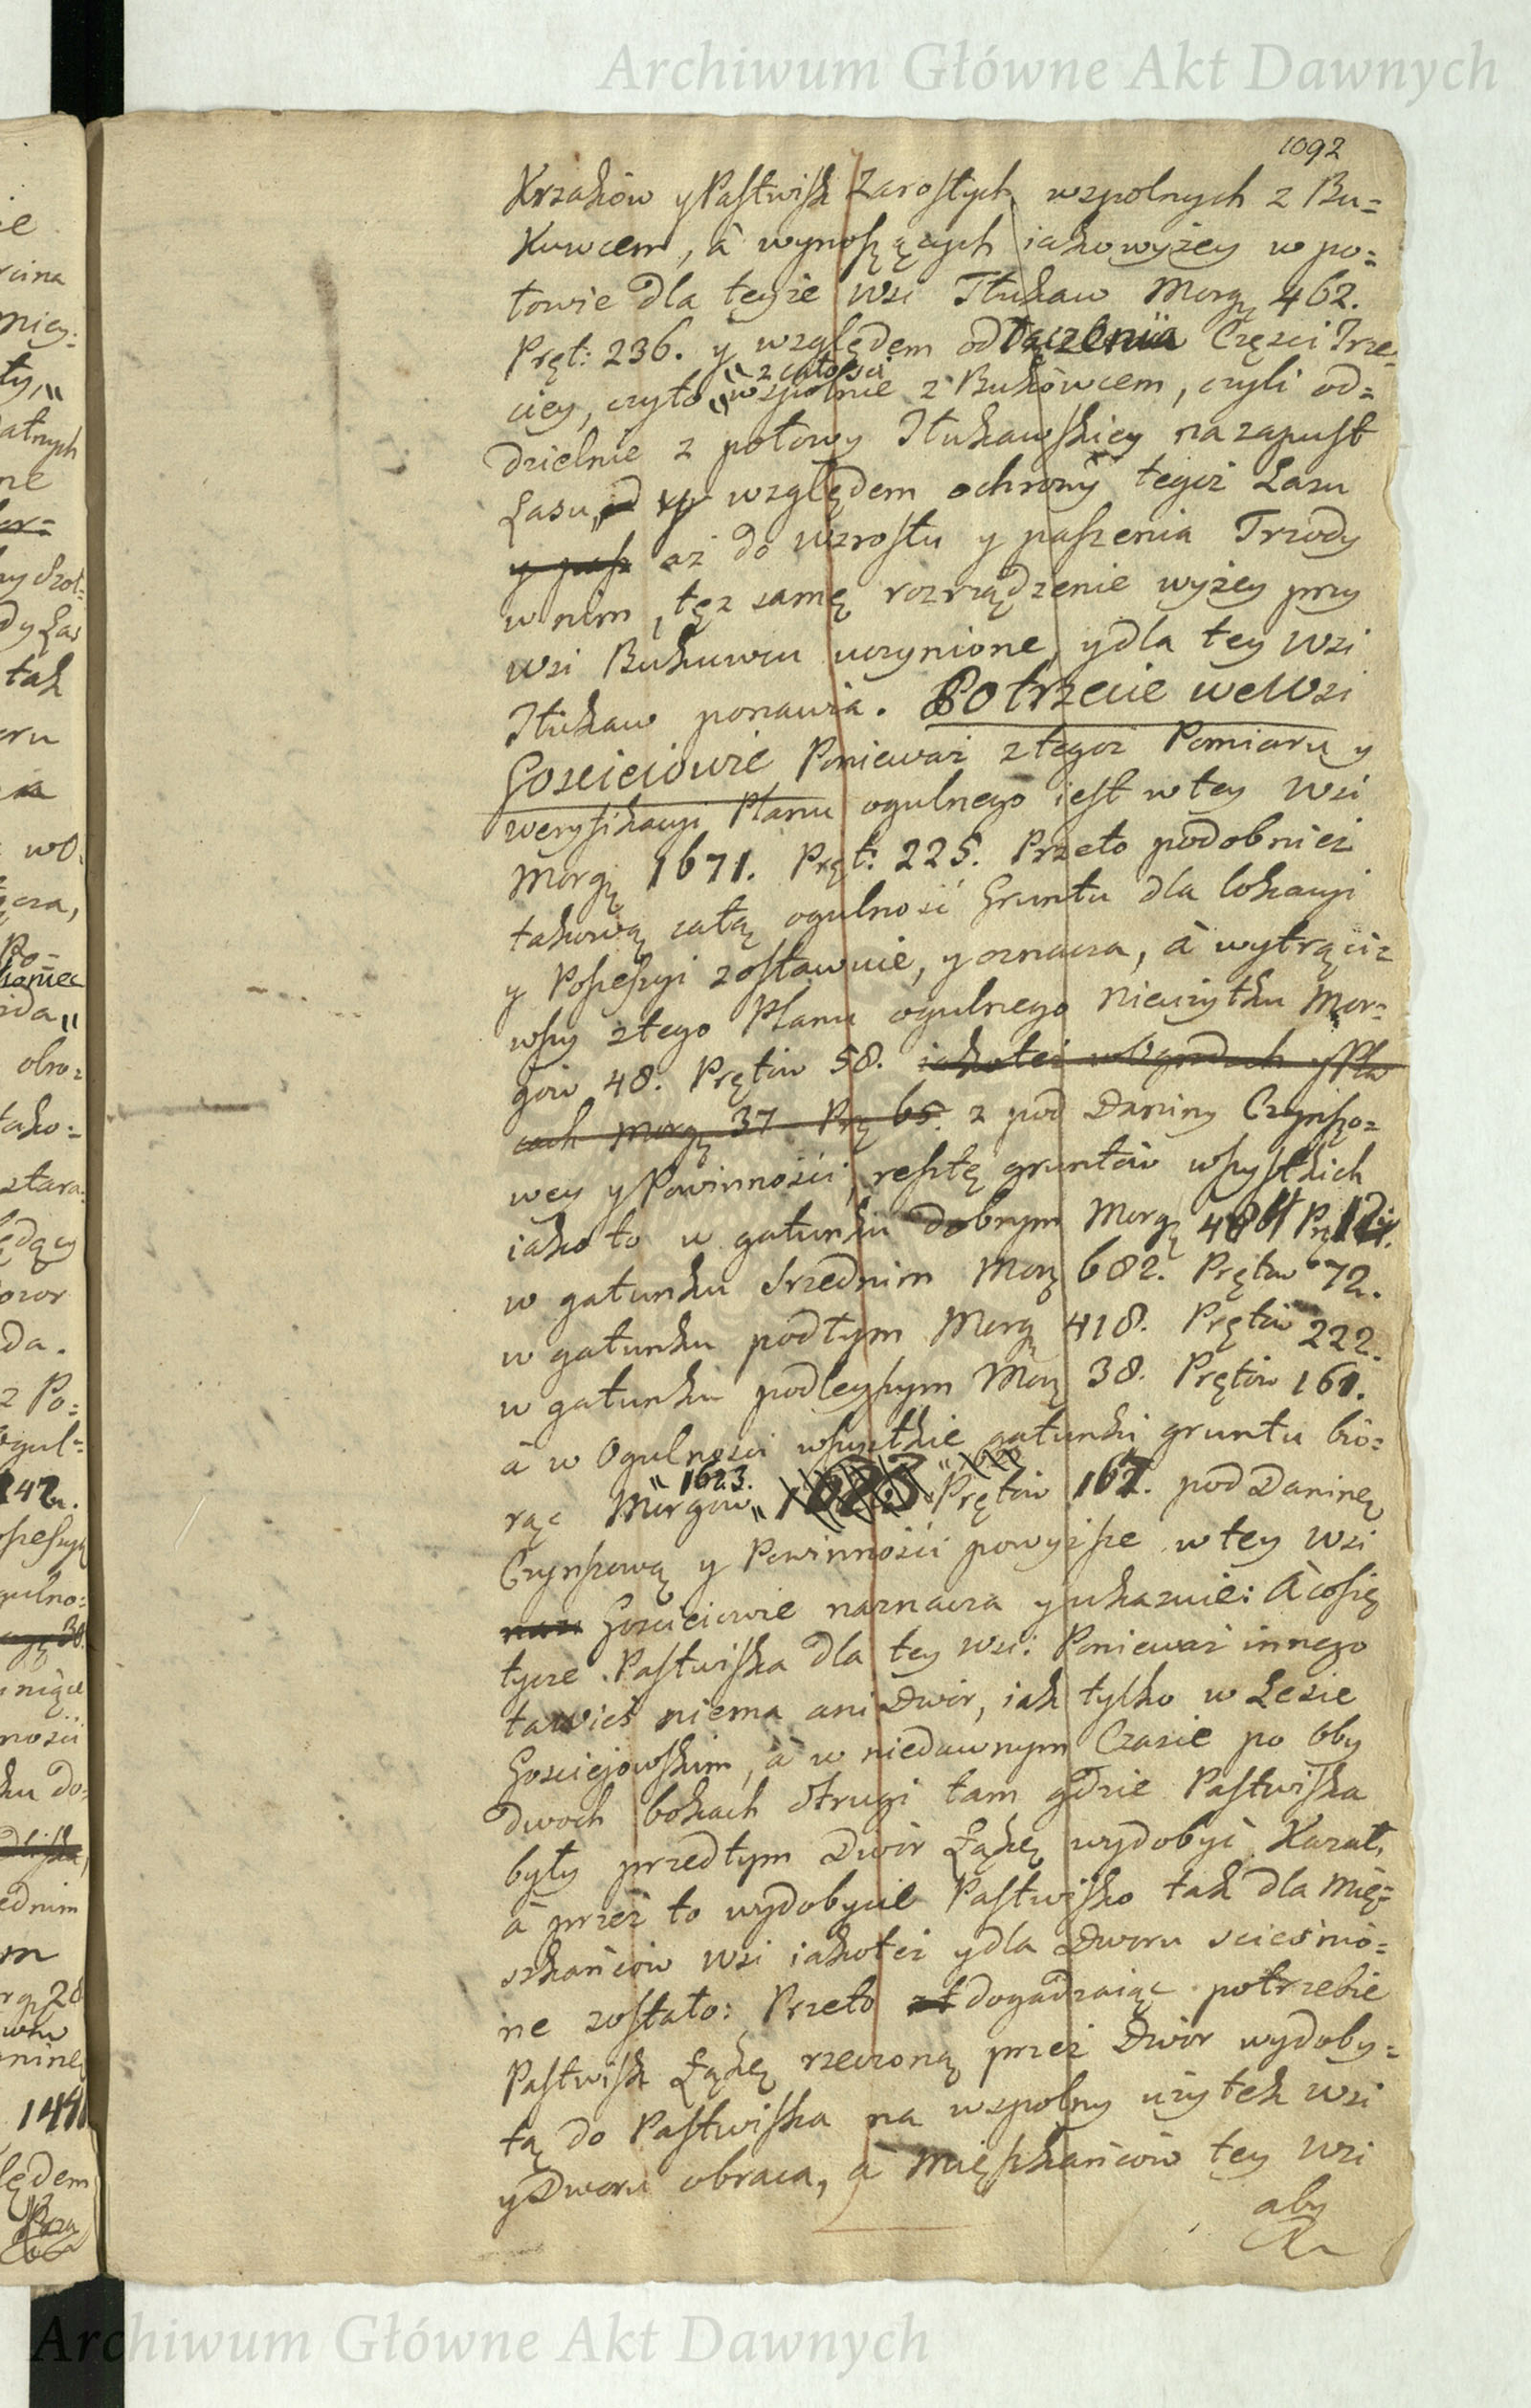 Archiwum Główne Akt Dawnych
1092
Krzaków y Pastwisk zarosłych wspolnych z Bu=
kuwcem, à wynoszących iako wyżey w po=
łowie dla teyże Wsi Tłukaw Morg. 462.
Pręt: 236. y względem odłączenia Częsci Trze
ciey, czyto „z całosci
wspolnie z Bukówcem, czyli od=
dzielnie z połowy Tłukawskiey na zapust
Lasu, względem ochrony tegoż Lasu
aż do wzrostu y paszenia Trzody
w nim, tęż samę rozrządzenie wyżey przy
Wsi Bukuwcu uczynione, y dla tey Wsi
Tłukaw ponawia. Po trzecie we Wsi
Gosciciowie Ponieważ z tegoż Pomiaru y
weryfikacyi Planu ogulnego iest w tey Wsi
Morgę 1671. Pręt: 225. Przeto podobnież
takową całą ogulność Gruntu dla lokacyi
y Possessyi zostawuie, y oznacza, à wytrąci=
wszy z tego Planu ogulnego Nieużytku Mor=
gów 48. Prętów 58. iakoteż w Ogrodach y Pla
cach Morgę 37 Prę 65. z pod Daniny Czynszo=
wey y Powinności, resztę gruntów wszystkich
iako to w gatunku dobrym Morgę Prę
w gatunku srzednim Morg 682. Prętów 72.
w gatunku podłym Morg 418. Prętów 222.
w gatunku podleyszym Morg 38. Prętów 161.
à w Ogulności wszystkie gatunki gruntu bio=
rąc Morgow „1623.„ Prętów 167. pod Daninę
Czynszową y Powinności powyższe w tey Wsi
Gosciciowie naznacza y ukazuie: A co się
tycze Pastwiska dla tey Wsi: Ponieważ innego
ta wieś niema ani Dwór, iak tylko w Lesie
Gosciejowskim, à w niedawnym Czasie po oby
dwoch bokach strugi tam gdzie Pastwiska
były przedtym Dwór Łąkę wydobyć Kazał,
à przez to wydobycie Pastwisko tak dla Mię=
szkańców Wsi iakoteż y dla Dworu scieśnio=
ne zostało: Przeto dogadzaiąc potrzebie
Pastwisk Łąkę rzeczoną przez Dwór wydoby=
tą do Pastwiska na wspolny użytek Wsi
y Dworu obraca, à Mięszkańców tey Wsi
aby
Archiwum Główne Akt Dawnych